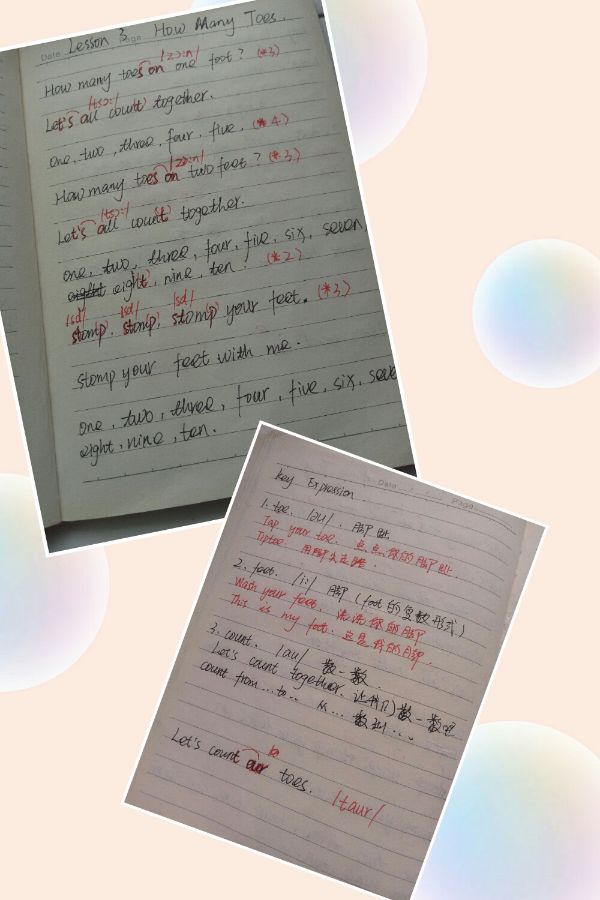 Lesson 3. How Many Toes.
Date
/zɔ:n/
How many toes on one foot? (*3)
/tsɔ:/
Let's all count together.
one, two, three, four, five. (*4)
/zɔ:n/
How many toes on two feet? (*3)
/tsɔ:/ (t)
Let's all count together.
one, two, three, four, five, six, seven,
eight, nine, ten. (*2)
/sd/ /sd/ /sd/
stomp, stomp, stomp your feet. (*3)
stomp your feet with me.
one, two, three, four, five, six, seve
eight, nine, ten.
Date Page
Key Expression
1. toe. /əu/. 脚趾
Tap your toe. 点点你的脚趾.
Tiptoe 用脚尖走路.
2. feet. /i:/ 脚 (foot的复数形式)
Wash your feet. 洗洗你的脚
This is my foot. 这是我的脚.
3. count. /au/ 数一数.
Let's count together. 让我们数一数吧
count from...to.. 从...数到...
Let's count our toes. /taur/